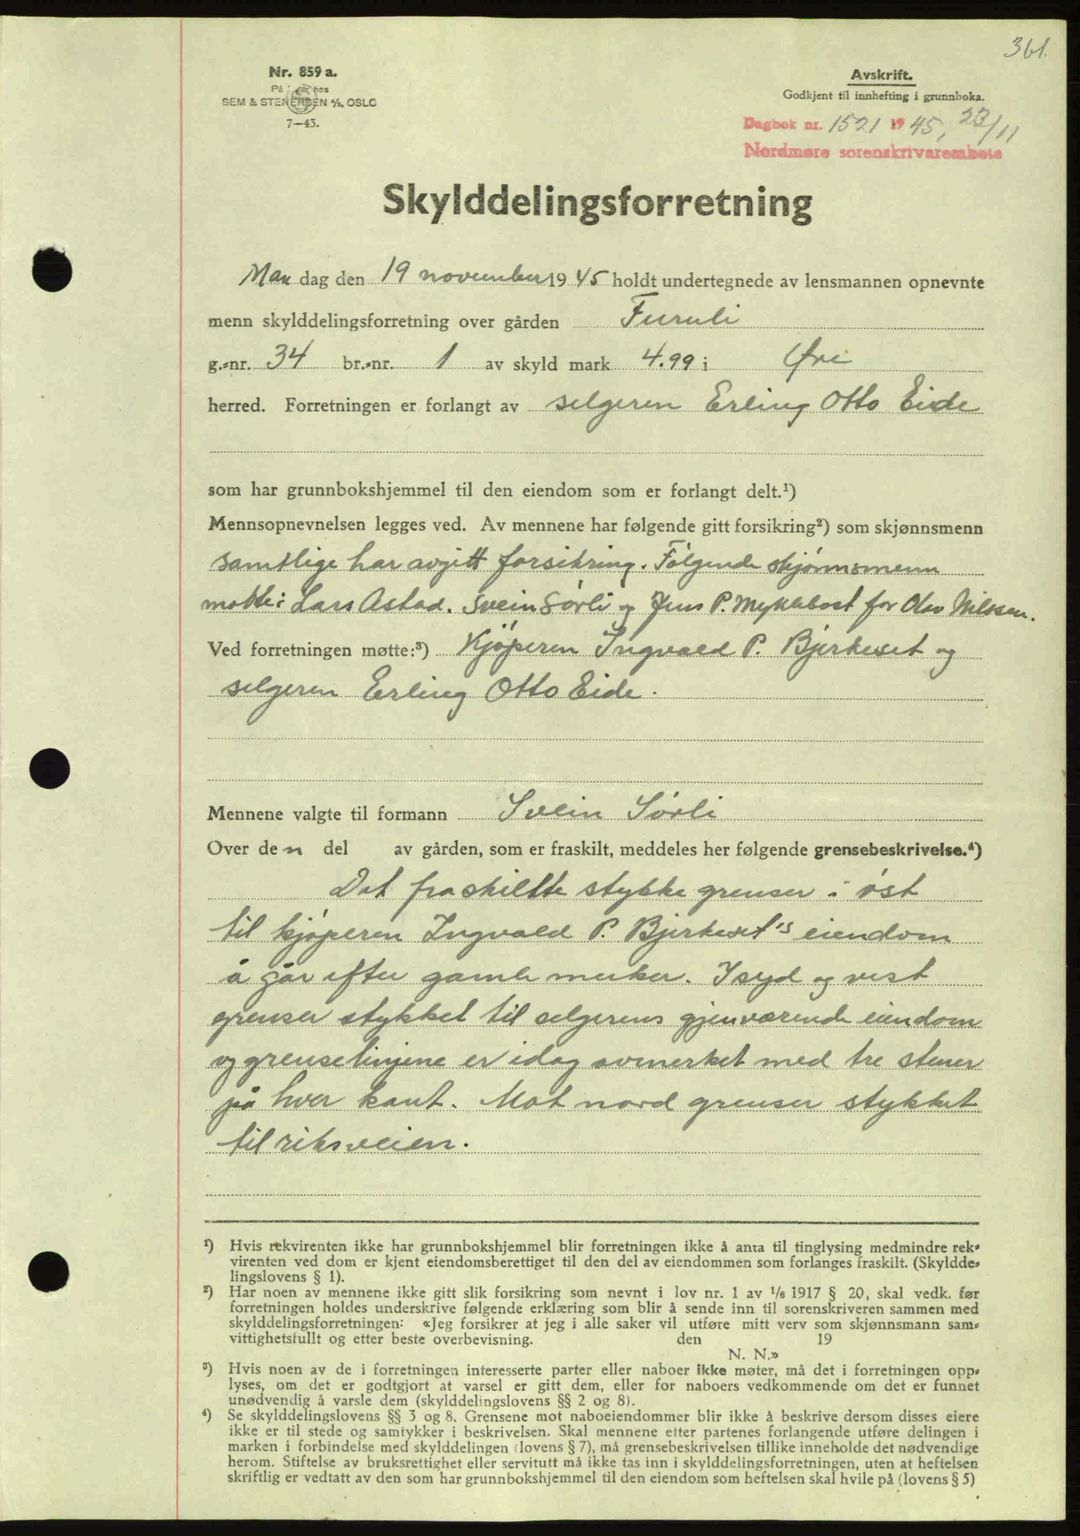 361.
Nr. 859 a.
SEM & STENERSEN A/S, OSLO
7—43.
Avskrift.
Godkjent til innhefting i grunnboka.
Dagbok nr. 1521 1945, 23/11
Nordmøre sorenskrivarembete
Skylddelingsforretning
Mandag den 19 november 1945 holdt undertegnede av lensmannen opnevnte
menn skylddelingsforretning over gården Furuli
g.-nr. 34 br.-nr. 1 av skyld mark 4.99 i Øre
herred. Forretningen er forlangt av selgeren Erling Otto Eide
som har grunnbokshjemmel til den eiendom som er forlangt delt.¹)
Mennsopnevnelsen legges ved. Av mennene har følgende gitt forsikring²) som skjønnsmenn
samtlige har avgitt forsikring. Følgende skjønnsmenn
møtte: Lars Astad. Svein Sørli og Jens P. Myklebost for Olav Nilssen.
Ved forretningen møtte:³) Kjøperen Ingvald P. Bjerkeset og
selgeren Erling Otto Eide.
Mennene valgte til formann Svein Sørli
Over den del av gården, som er fraskilt, meddeles her følgende grensebeskrivelse.⁴)
Det fraskilte stykke grenser i øst
til kjøperen Ingvald P. Bjerkeset's eiendom
å går efter gamle merker. I syd og vest
grenser stykket til selgerens gjenværende eiendom
og grenselinjene er idag avmerket med tre stener
på hver kant. Mot nord grenser stykket
til riksveien.
¹) Hvis rekvirenten ikke har grunnbokshjemmel blir forretningen ikke å anta til tinglysing medmindre rek-
virenten ved dom er kjent eiendomsberettiget til den del av eiendommen som forlanges fraskilt. (Skyldde-
lingslovens § 1).
²) Har noen av mennene ikke gitt slik forsikring som nevnt i lov nr. 1 av 1/6 1917 § 20, skal vedk. før
forretningen holdes underskrive følgende erklæring som blir å sende inn til sorenskriveren sammen med
skylddelingsforretningen: «Jeg forsikrer at jeg i alle saker vil utføre mitt verv som skjønnsmann sam-
vittighetsfullt og etter beste overbevisning. den 19
N. N.»
³) Hvis noen av de i forretningen interesserte parter eller naboer ikke møter, må det i forretningen opp-
lyses, om det er godtgjort at varsel er gitt dem, eller for naboers vedkommende om det er funnet
unødvendig å varsle dem (skylddelingslovens §§ 2 og 8).
⁴) Se skylddelingslovens §§ 3 og 8. Grensene mot naboeiendommer blir ikke å beskrive dersom disses eiere
ikke er til stede og samtykker i beskrivelsen. Skal mennene etter partenes forlangende utføre delingen i
marken i forbindelse med skylddelingen (lovens § 7), må grensebeskrivelsen tillike inneholde det nødvendige
herom. Stiftelse av bruksrettighet eller servitutt må ikke tas inn i skylddelingsforretningen, uten at heftelsen
skriftlig er vedtatt av den som har grunnbokshjemmel til den eiendom som heftelsen skal hvile på (lovens § 5)